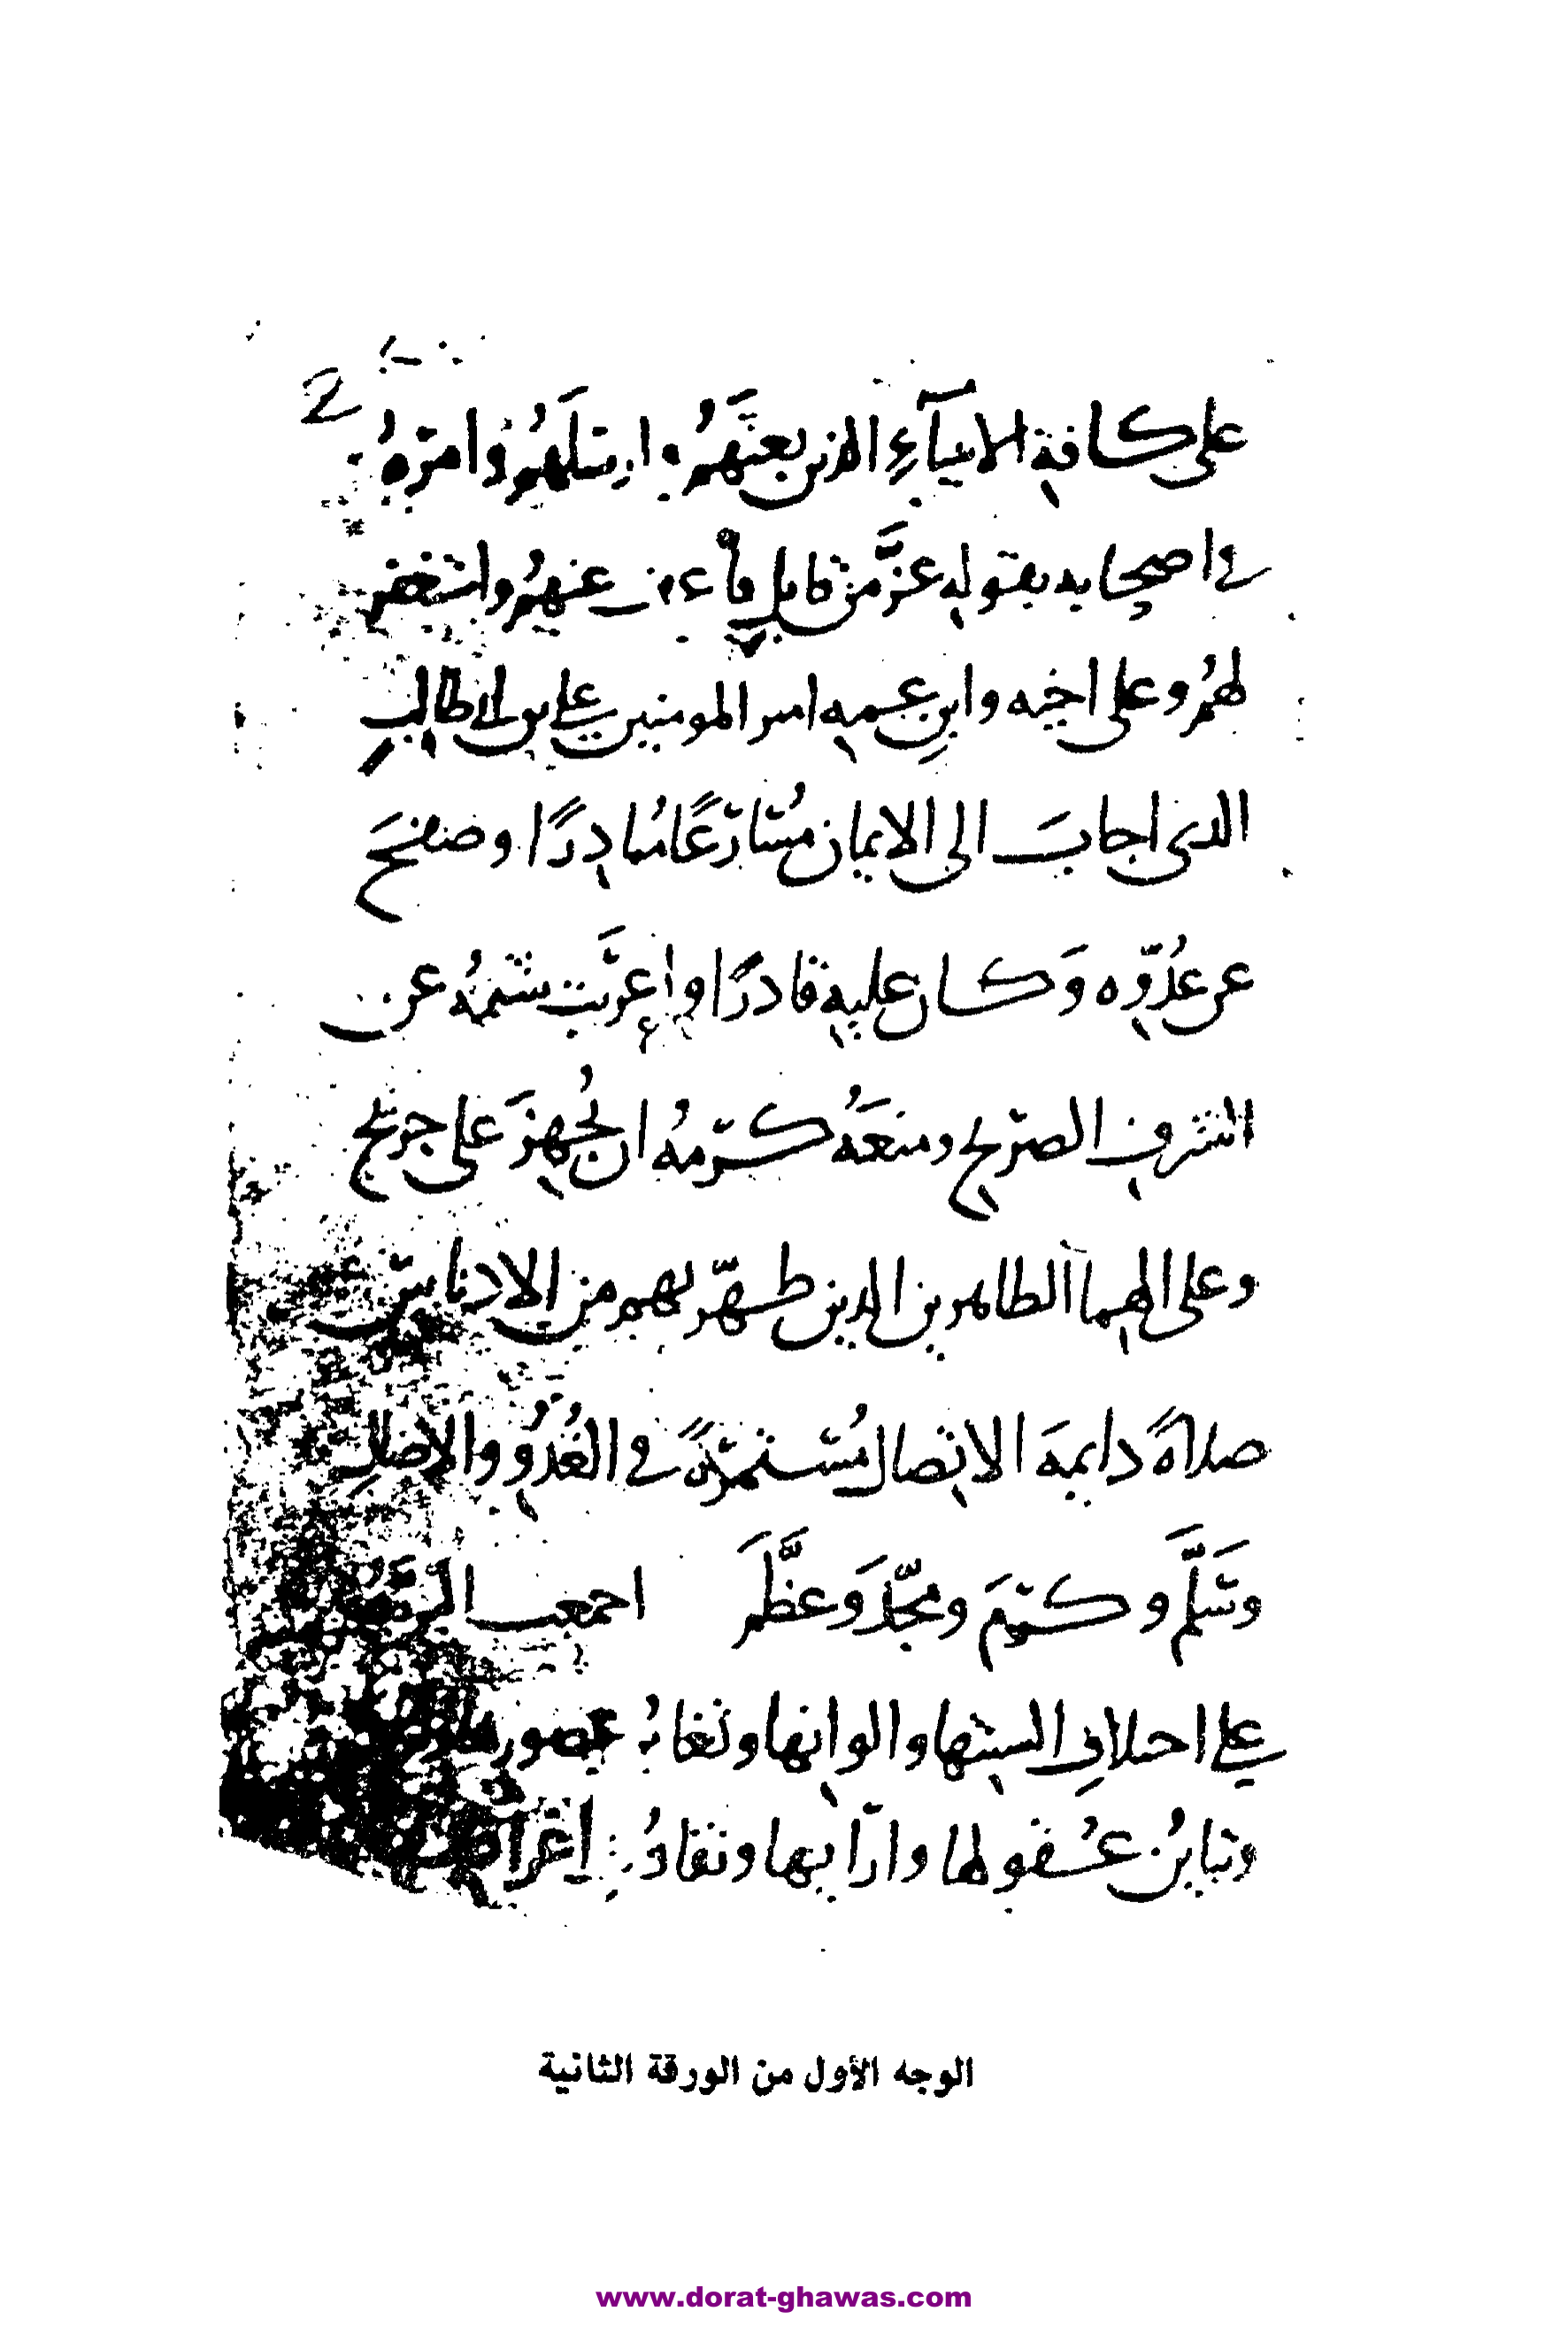 2
على كافة الانبيآءِ الذين بعثَهمُ وارسَلَهمُ وامرهُ
في اصحابه بقوله عزَّ من قايلٍ فاْعف عنهمُ واستغفر
لهمُ وعلى اخيه وابنِ عمه امير المومنين علي بن ابي طالبٍ
الذى اجابَ الى الايمان مُسَارعًا مُبادِرًا وصفحَ
عن عدُوّه وَكان عليه قادرًا واعرَبت شيمُه عن
الشرف الصريح ومنعَهُ كرمهُ ان يُجهزَ على جريح
وعلى الهما الطاهرين الذين طهّرتهم من الادناس
صلاةً دايمةَ الاتصال مُستمرةً في الغُدُوّ والاصالِ
وسَلَّم وكرّمَ ومجّدَ وَعظَّمَ اجمعت
على اختلافِ السنتها والوانها وتغايُر
وتبايُن عُقولها وارآيها وتفاوُت
الوجه الأول من الورقة الثانية
www.dorat-ghawas.com